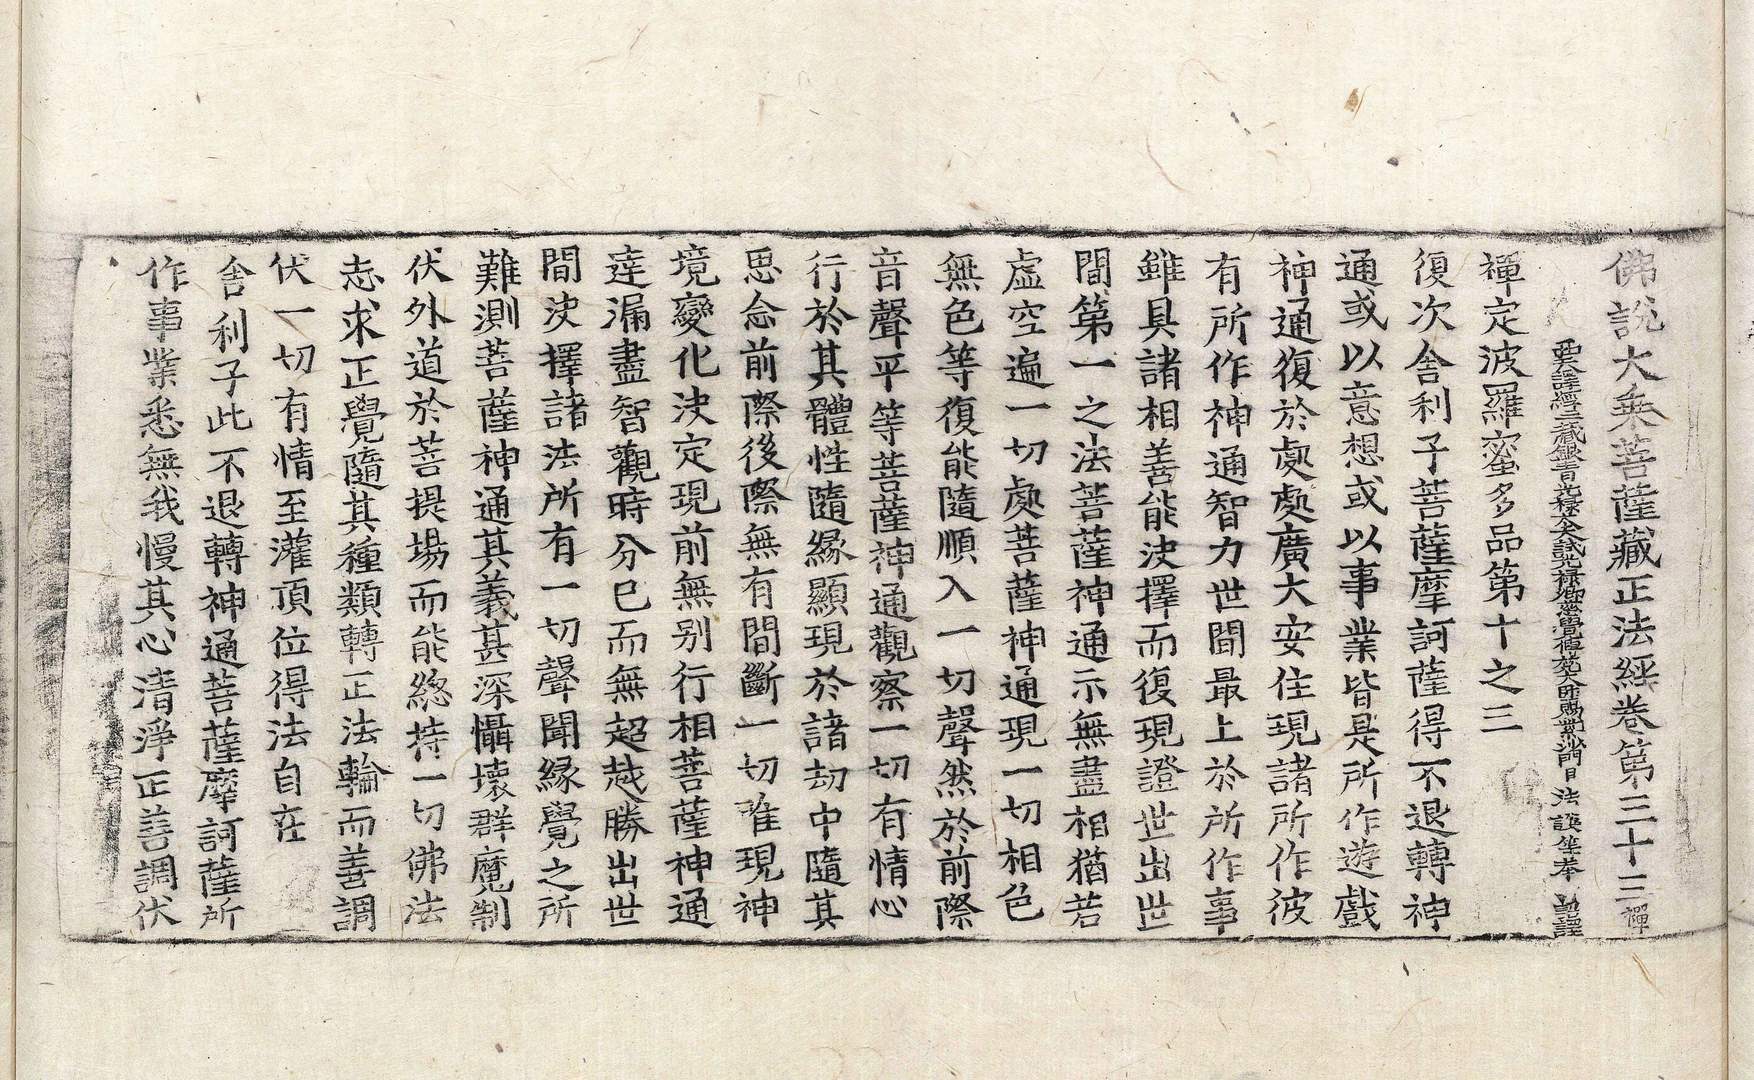 佛說大乗菩薩藏正法經卷第三十三 禪
譯經三藏銀青光祿大夫試光祿卿普覺傳梵大師賜紫沙門臣 法護等奉 詔譯
禪定波羅蜜多品第十之三
復次舍利子菩薩摩訶薩得不退轉神
通或以意想或以事業皆是所作遊戲
神通復於處處廣大安住現諸所作彼
有所作神通智力世間最上於所作事
雖具諸相善能决擇而復現證世出世
間第一之法菩薩神通示無盡相猶若
虛空遍一切處菩薩神通現一切相色
無色等復能隨順入一切聲然於前際
音聲平等菩薩神通觀察一切有情心
行於其體性隨緣顯現於諸劫中隨其
思念前際後際無有間斷一切唯現神
境變化决定現前無別行相菩薩神通
達漏盡智觀時分已而無超越勝出世
間决擇諸法所有一切聲聞緣覺之所
難測菩薩神通其義甚深懾壞群魔制
伏外道於菩提場而能總持一切佛法
志求正覺隨其種類轉正法輪而善調
伏一切有情至灌頂位得法自在
舍利子此不退轉神通菩薩摩訶薩所
作事業悉無我慢其心清淨正善調伏